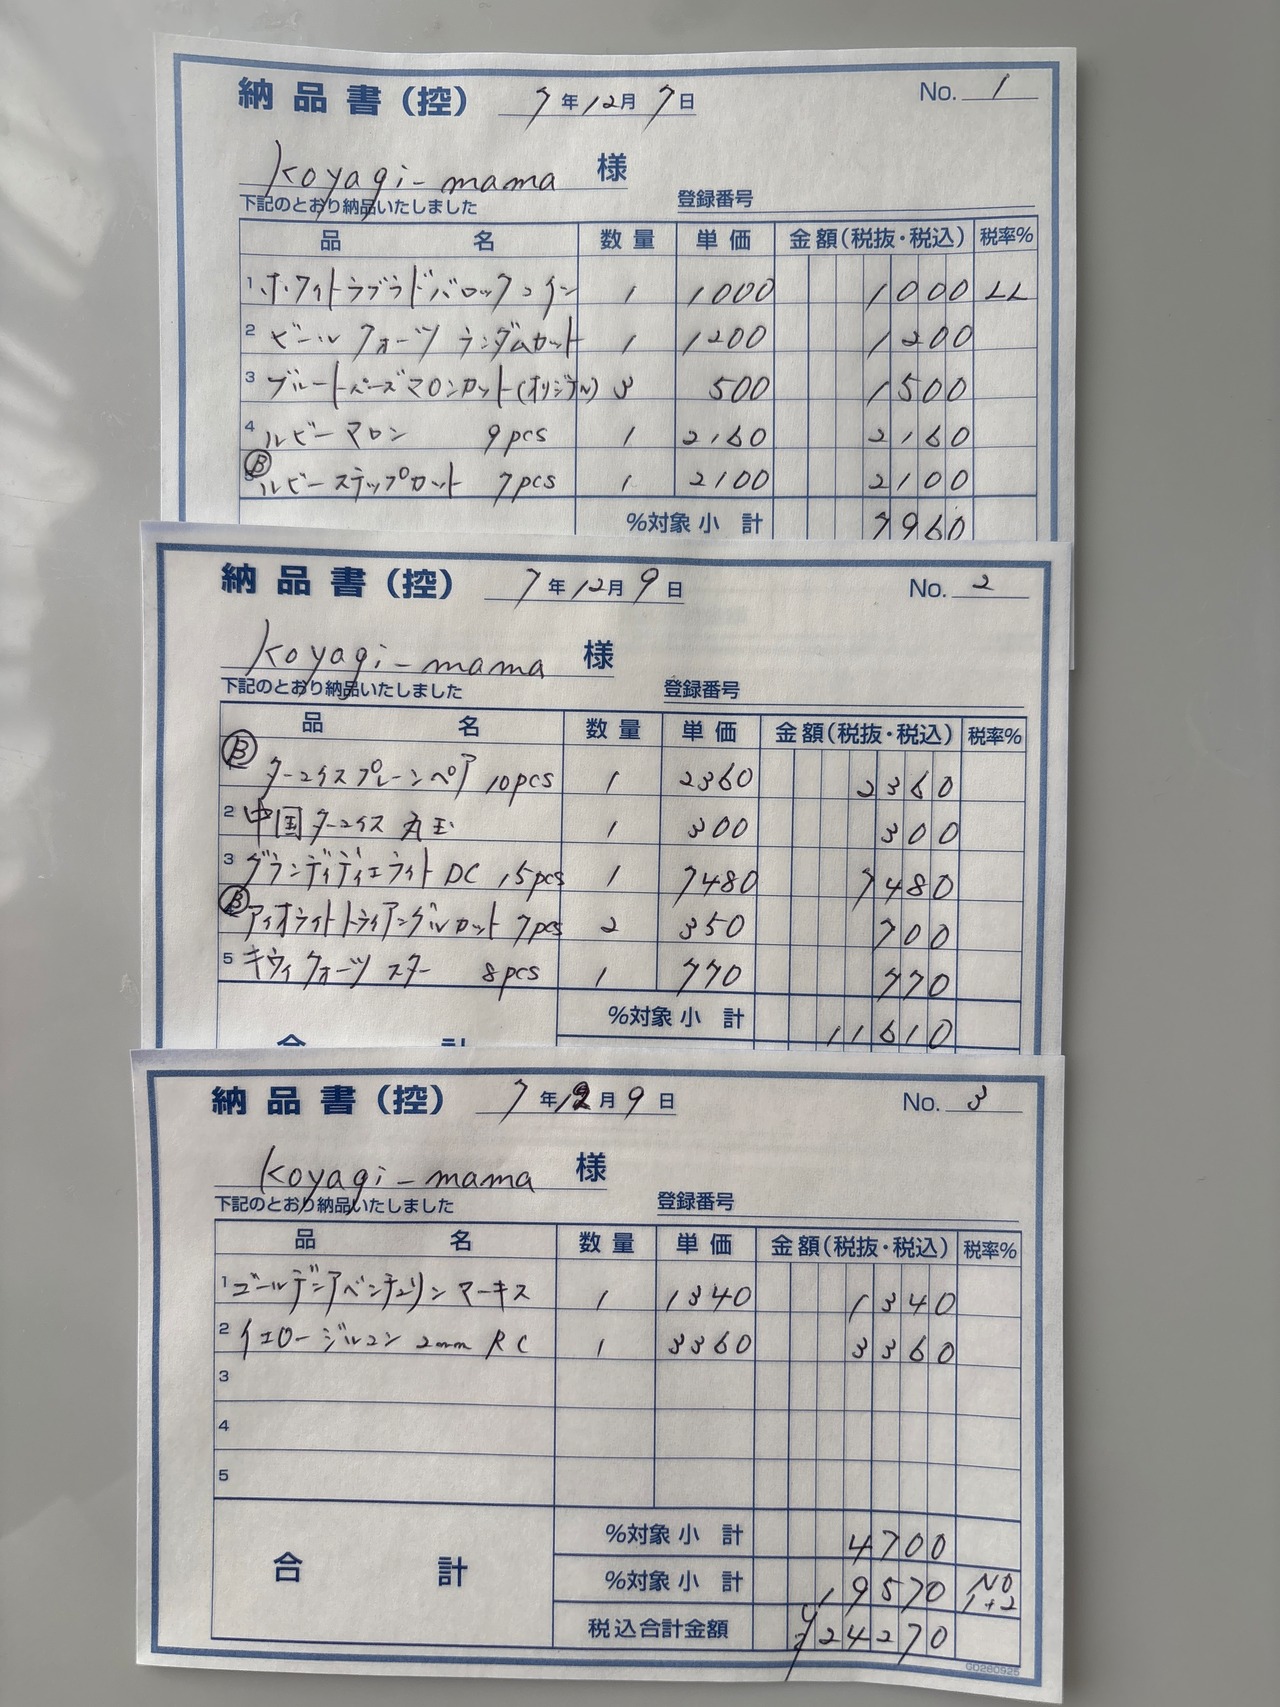 納品書(控) 7年12月7日 No. 1
Koyagi-mama 様
下記のとおり納品いたしました 登録番号
品名 数量 単価 金額(税抜・税込) 税率%
1 ホワイトラブラドバロックコイン 1 1000 1000 LL
2 ビールクォーツ ランダムカット 1 1200 1200
3 ブルートパーズマロンカット(オリジナル) 3 500 1500
4 ルビーマロン 9pcs 1 2160 2160
Ⓑ ルビーステップカット 7pcs 1 2100 2100
%対象小計 7960
納品書(控) 7年12月9日 No. 2
Koyagi-mama 様
下記のとおり納品いたしました 登録番号
品名 数量 単価 金額(税抜・税込) 税率%
Ⓑ ターコイズプレーンペア 10pcs 1 2360 2360
2 中国ターコイズ 丸玉 1 300 300
3 グランディディエライト DC 15pcs 1 7480 7480
Ⓑ アイオライトトライアングルカット 7pcs 2 350 700
5 キウイクォーツ スター 8pcs 1 770 770
%対象小計 11610
合計
納品書(控) 7年12月9日 No. 3
Koyagi-mama 様
下記のとおり納品いたしました 登録番号
品名 数量 単価 金額(税抜・税込) 税率%
1 ゴールデンアベンチュリン マーキス 1 1340 1340
2 イエロージルコン 2mm RC 1 3360 3360
3
4
5
%対象小計 4700
合計 %対象小計 19570 NO 1+2
税込合計金額 ¥24270
GO280925